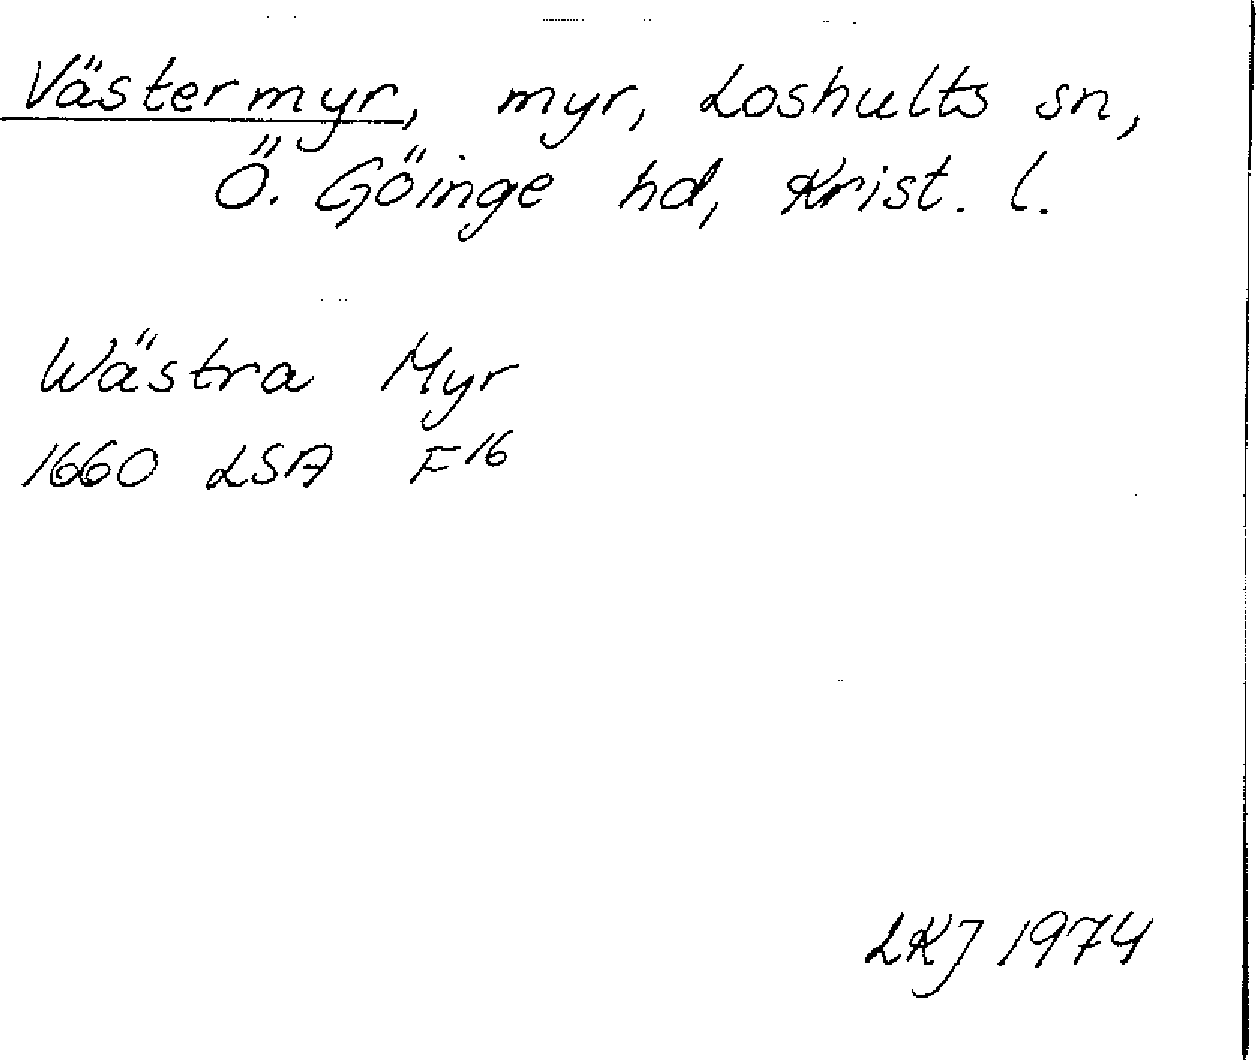 Västermyr, myr, Loshults sn,
Ö. Göinge hd, Krist. l.
Wästra Myr
1660 LSA F16
LKJ 1974